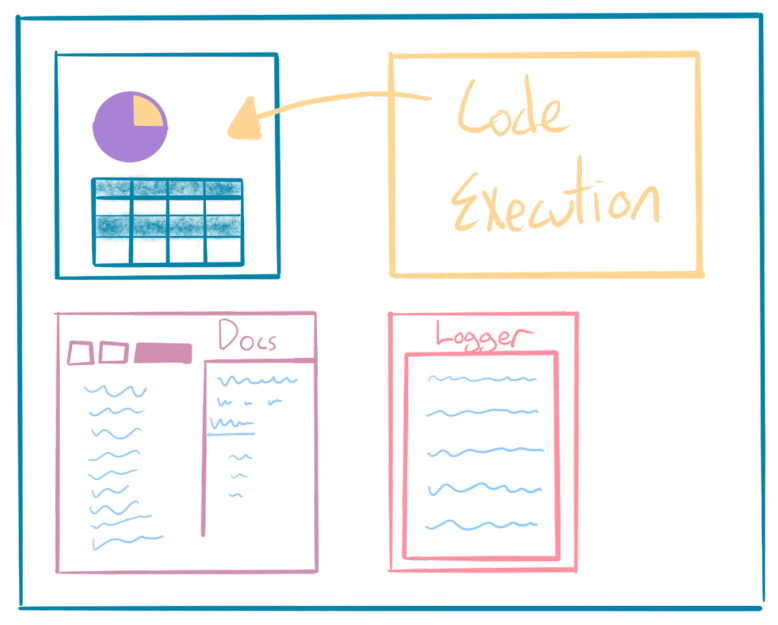 Code
Execution
Docs
Logger